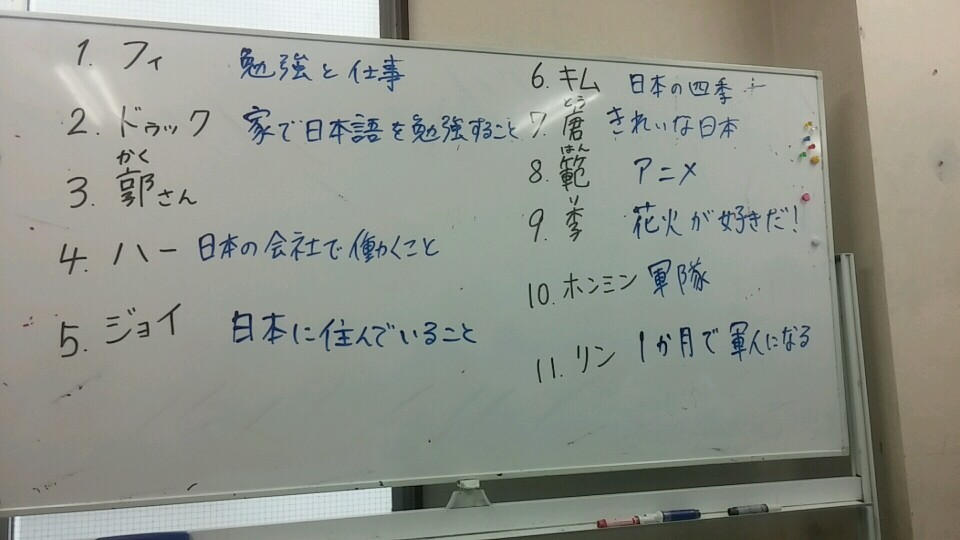 1. フィ 勉強と仕事
2. ドゥック 家で日本語を勉強すること
かく
3. 郭さん
4. ハー 日本の会社で働くこと
5. ジョイ 日本に住んでいること
6. キム 日本の四季
とう
7. 唐 きれいな日本
はん
8. 範 アニメ
り
9. 李 花火が好きだ!
10. ホンミン 軍隊
11. リン 1か月で軍人になる